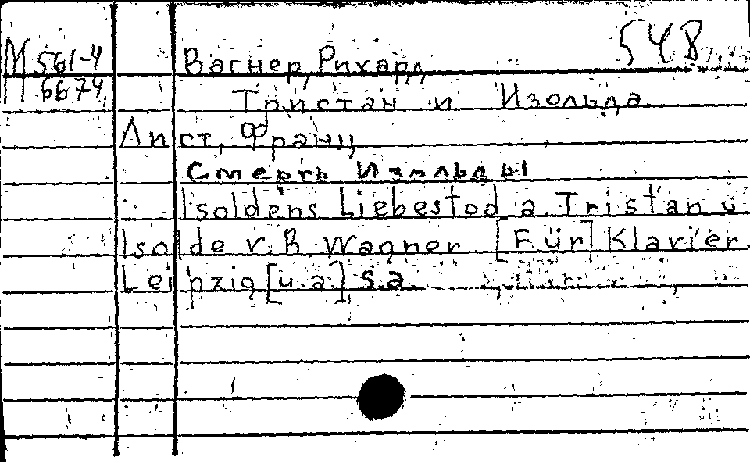 М 561-4
6674
548
Вагнер, Рихард
Тристан и Изольда
Лист, Франц
Смерть Изольды
Isoldens Liebestod a. Tristan u.
Isolde v. R. Wagner [Für] Klavier
Leipzig [u.a.] s.a.